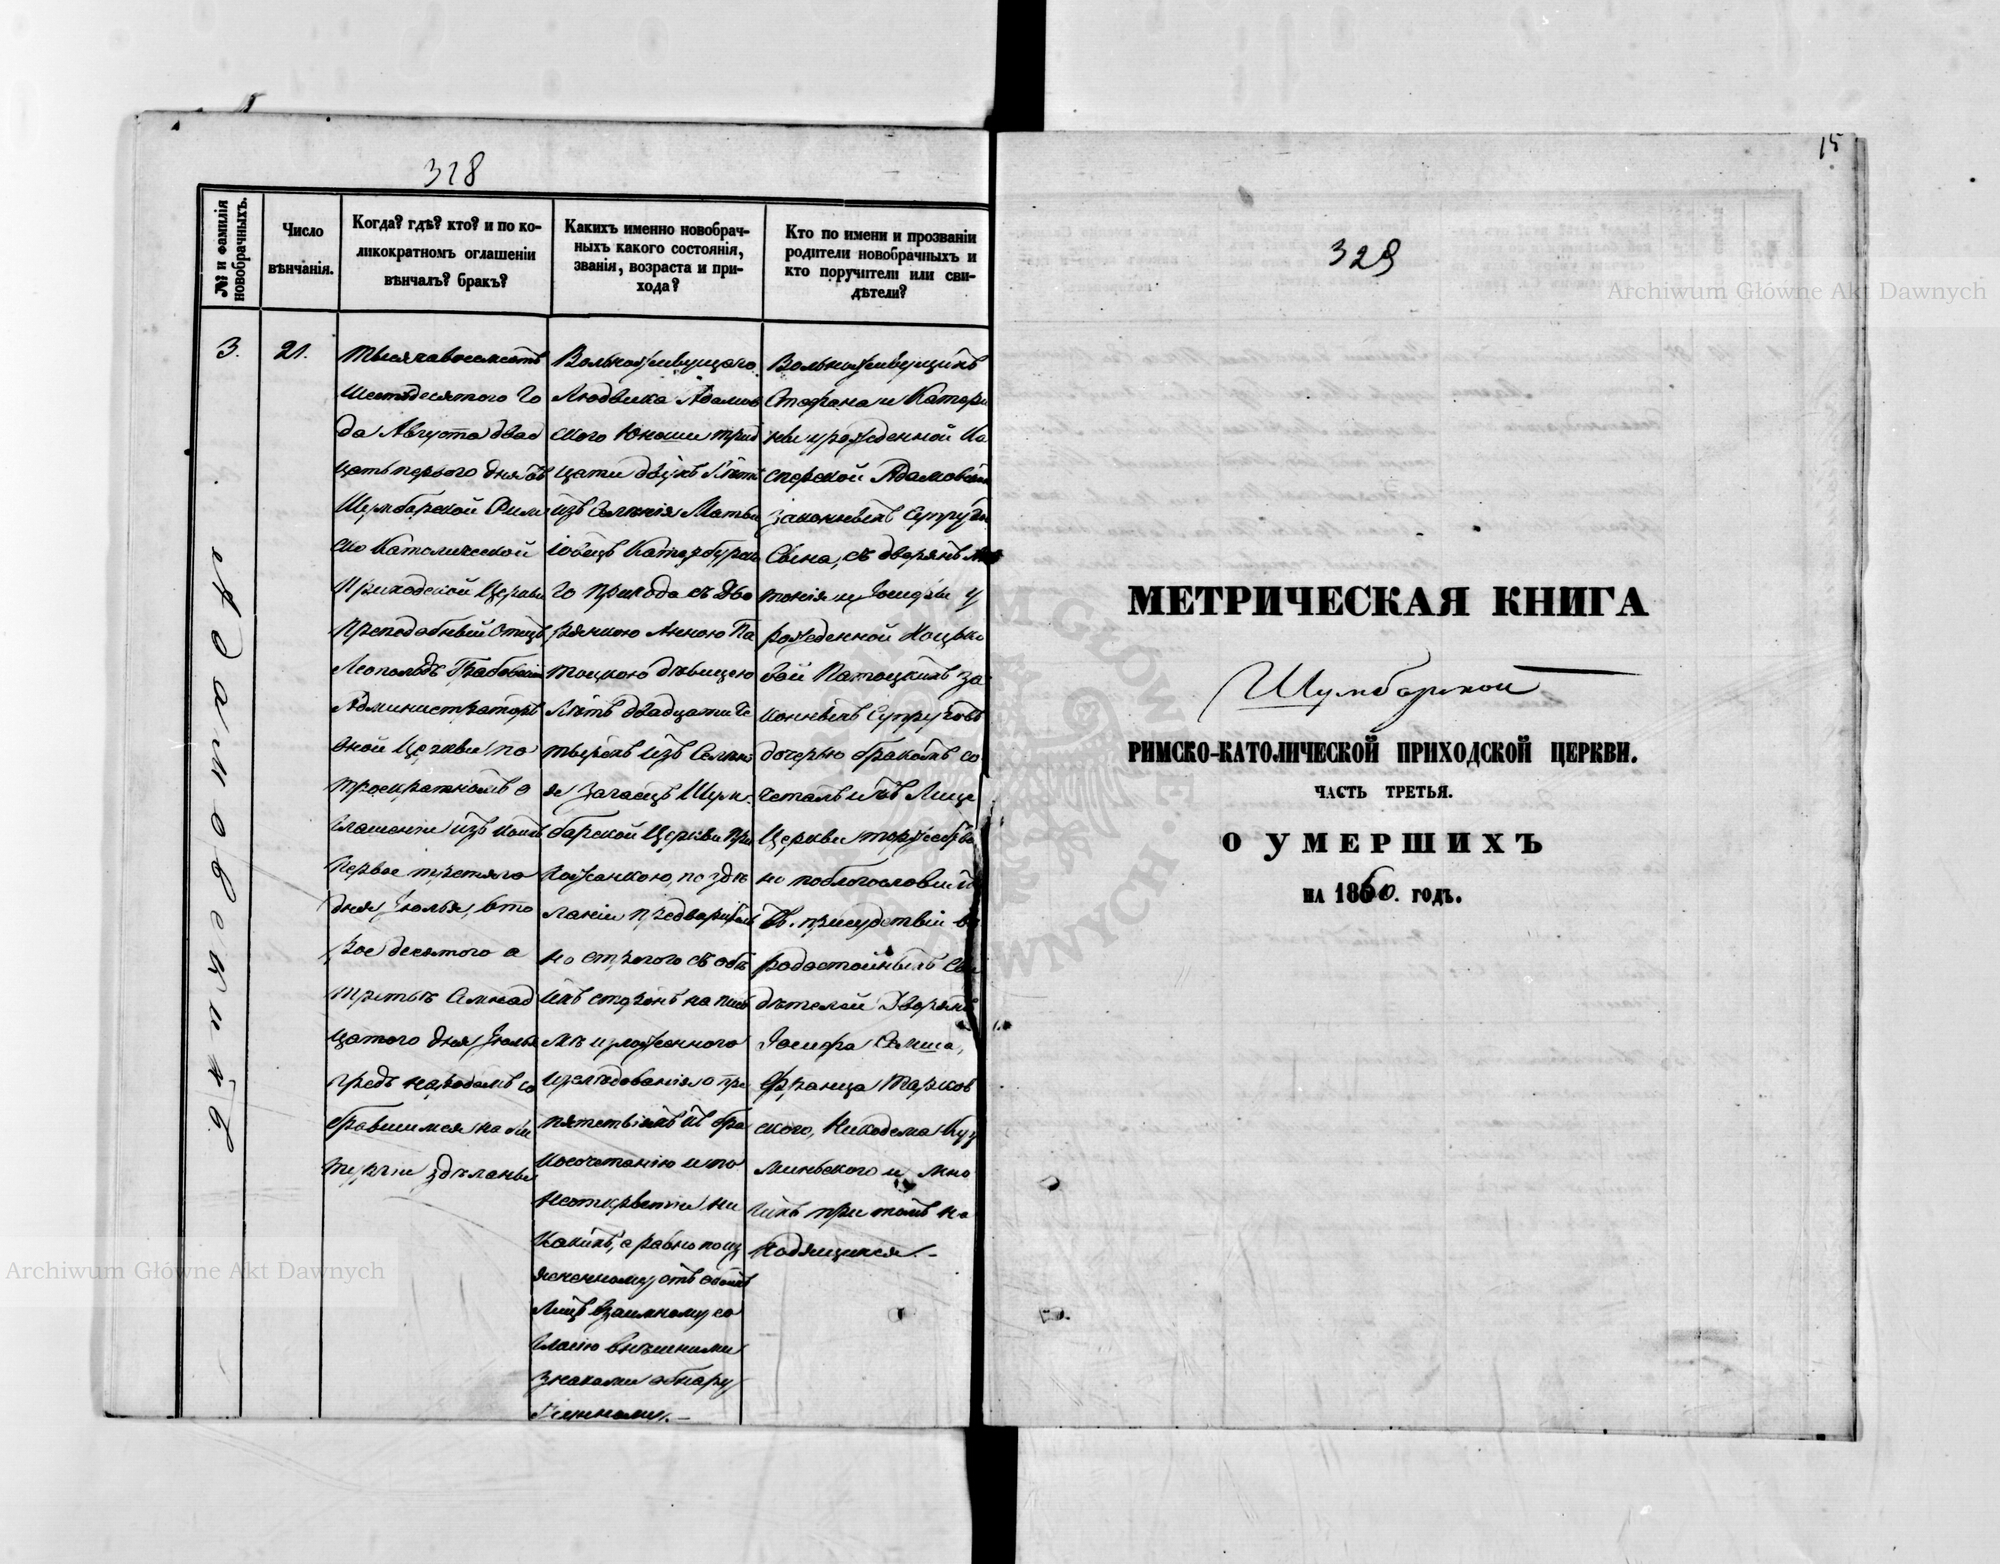 328
№ и фамилія новобрачныхъ.
Число
вѣнчанія.
Когда? гдѣ? кто? и по ко-
ликократномъ оглашеніи
вѣнчалъ? бракъ?
Какихъ именно новобрач-
ныхъ какого состоянія,
званія, возраста и при-
хода?
Кто по имени и прозваніи
родители новобрачныхъ и
кто поручители или сви-
дѣтели?
3.
Адамовскихъ
21.
Тысяча восемсотъ
Шестьдесятого Го
да Августа двад
цать первого дня въ
Шумбарской Рим
ско Католической
Приходской Церкви
Преподобный Отецъ
Леопольдъ
Администраторъ
оной Церкви по
троекратномъ о
глашеніи изъ коихъ
первое третяго
дня Іюлья, вто
рое десятого а
третье Семнад
цатого дня Іюлья
предъ народомъ со
бравшимся на ли
тургіи зделаны
Вольноживущаго
Людвика Адамов
ского Юношу трид
цати двухъ Лѣтъ
изъ Селенія Матве
Катербургска
го прихода съ Дво
рянкою Анною По
тоцкою дѣвицею
Лѣтъ двадцати че
тырехъ изъ Селені
я Загаецъ Шум-
барской Церкви При
хожанкою, по здѣ
ланіи предварител
но строгого съ обѣ
ихъ сторонъ на пись
мѣ изложенного
изслѣдованія о пре
пятствіяхъ къ бра
косочетанію и по
неоткрытіи ни
какихъ, а равно по из
ясненному отъ обоихъ
Лицъ взаимному со
гласію внѣшними
знаками обнару
женному.-
Вольноживущихъ
Стефана и Катери
ны урожденной Ка
сперской Адамовскихъ
законныхъ Супругов
Сына, съ дворянъ Ан
тонія и Іозефы у
рожденной
Потоцкихъ за
конныхъ Супруговъ
дочерью бракомъ со
четалъ и въ Лице
Церкви торжествен
но поблогословилъ
въ присудствіи
родостойныхъ Сви
дѣтелей Дворянъ
Іосифа
Франца Марков
ского, Никодема
миньского и мно
гихъ при томъ на
ходящихся.-
15
329
МЕТРИЧЕСКАЯ КНИГА
Шумбарской
РИМСКО-КАТОЛИЧЕСКОЙ ПРИХОДСКОЙ ЦЕРКВИ.
ЧАСТЬ ТРЕТЬЯ.
О УМЕРШИХЪ
НА 1860. ГОДЪ.
Archiwum Główne Akt Dawnych
Archiwum Główne Akt Dawnych